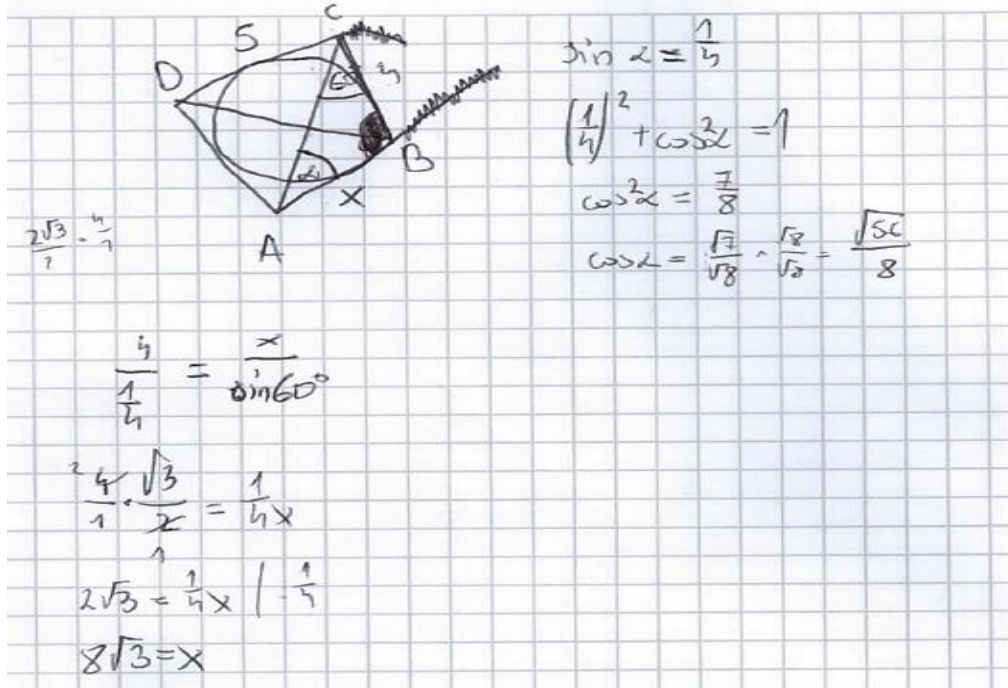 C
5
D
60°
4
B
α
x
A
sin α = 1/4
(1/4)² + cos²α = 1
cos²α = 7/8
cos α = √7/√8 · √8/√8 = √56/8
4/(1/4) = x/sin60°
4/1 · √3/2 = 1/4 x
2√3 = 1/4 x | : 1/4
8√3 = x